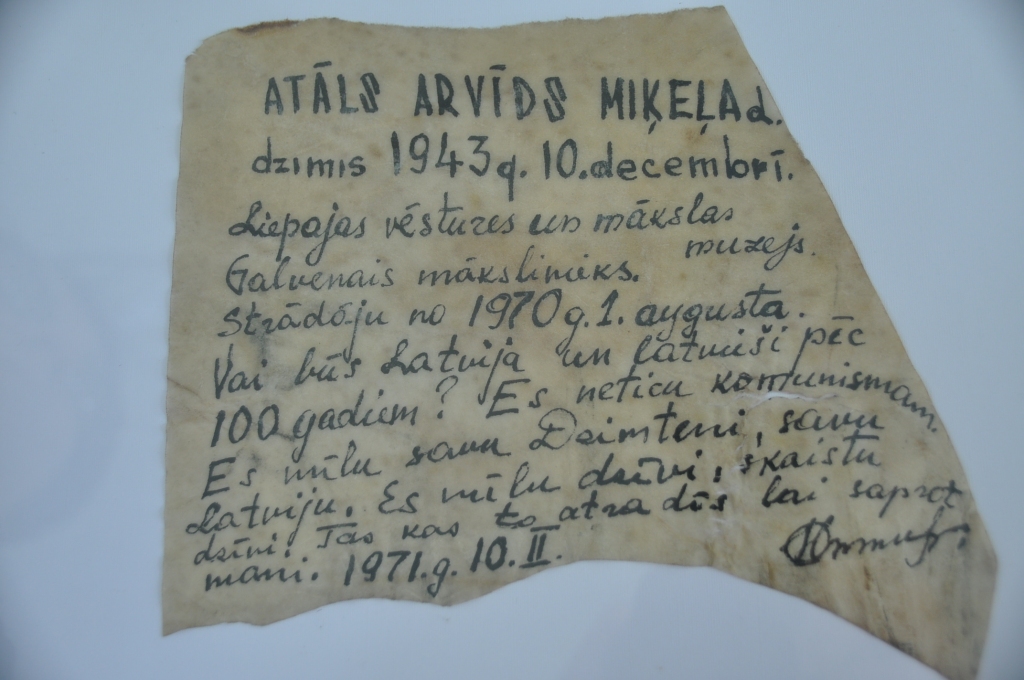 ATĀLS ARVĪDS MIĶEĻA d.
dzimis 1943 g. 10. decembrī.
Liepajas vēstures un mākslas
muzejs.
Galvenais mākslinieks.
Strādāju no 1970 g. 1. augusta.
Vai būs Latvija un latvieši pēc
100 gadiem? Es neticu komunismam.
Es mīlu savu Dzimteni, savu
Latviju. Es mīlu dzīvi, skaistu
dzīvi. Tas kas to atradīs lai saprot
mani. 1971. g. 10. II.